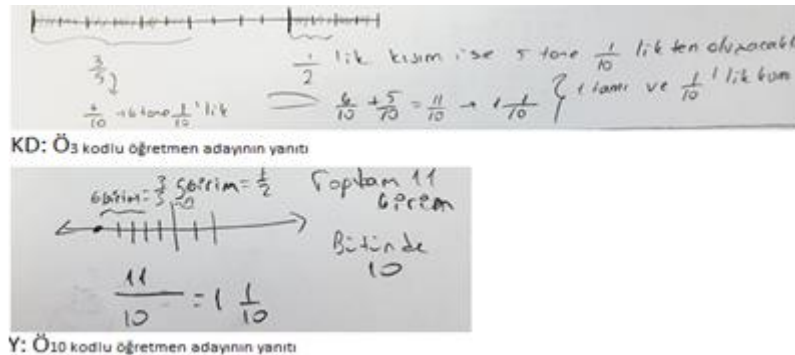 3/5
1/2 lik kısım ise 5 tane 1/10 lik ten oluşacaktı
6/10 → 6 tane 1/10'lik
6/10 + 5/10 = 11/10 → 1 1/10 } 1 tam ve 1/10'lik kısım
KD: Ö3 kodlu öğretmen adayının yanıtı
6 birim = 3/5 5 birim = 1/2 Toplam 11
birim
Bütünde
10
11/10 = 1 1/10
Y: Ö10 kodlu öğretmen adayının yanıtı